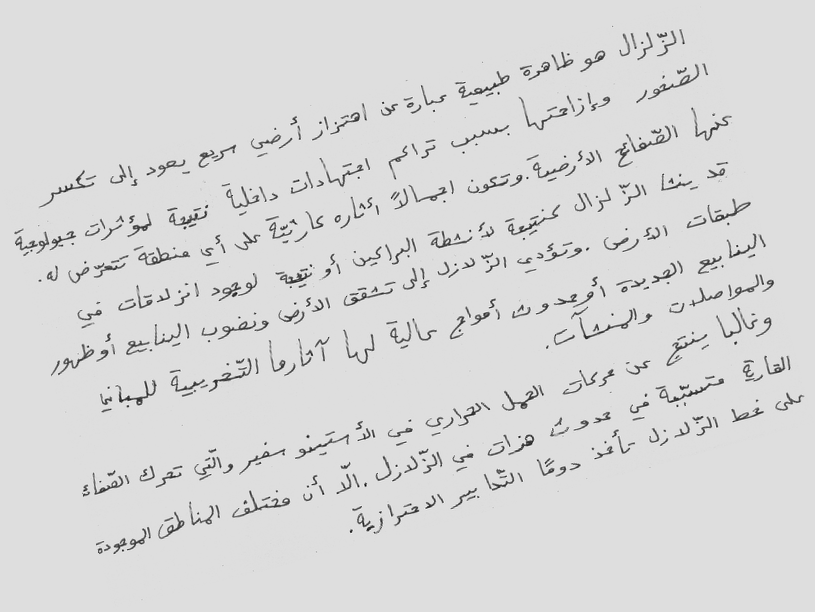 الزّلزال هو ظاهرة طبيعية عبارة عن اهتزاز أرضي سريع يعود إلى تكسر
الصّخور وإزاحتها بسبب تراكم اجتهادات داخلية نتيجة لمؤثرات جيولوجية
عنها الصّفائح الأرضية. وتكون اجمالاً أثاره كارثيّة على أي منطقة تتعرّض له.
قد ينشا الزّلزال كنتيجة لأنشطة البراكين أو نتيجة لوجود انزلاقات في
طبقات الأرض. وتؤدي الزّلازل إلى تشقق الأرض ونضوب الينابيع أو ظهور
الينابيع الجديدة أو حدوث أمواج عالية لها آثارها التّخريبية للمباني
والمواصلات والمنشآت.
وغالبا ينتج عن حركات الحمل الحراري في الأستينو سفير والّتي تحرك الصّفائ
القارية متسبّبة في حدوث هزات في الزّلازل. الّا أن مختلف المناطق الموجودة
على خط الزّلازل تأخذ دومًا التّدابير الاحترازية.